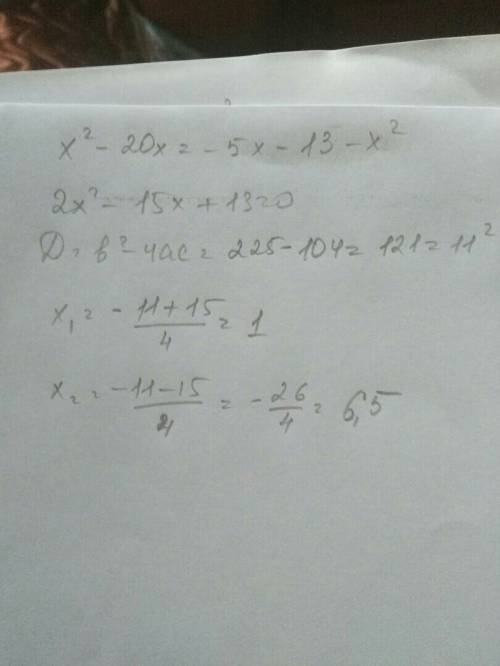 x² - 20x = - 5x - 13 - x²
2x² - 15x + 13 = 0
D = b² - 4ac = 225 - 104 = 121 = 11²
x₁ = - \frac{11 + 15}{4} = 1
x₂ = \frac{-11 - 15}{4} = - \frac{26}{4} = 6,5